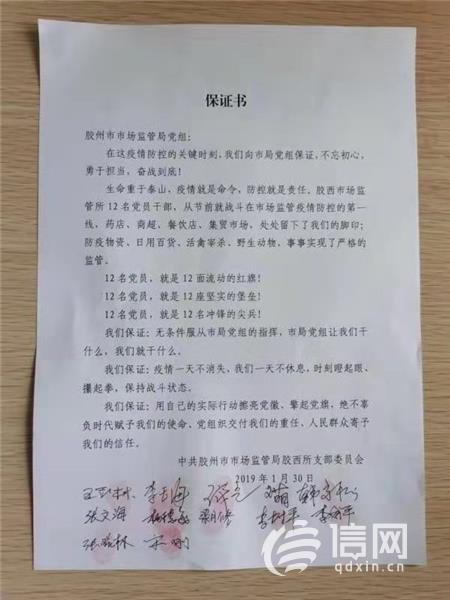 保证书
胶州市市场监管局党组：
在这疫情防控的关键时刻，我们向市局党组保证，不忘初心，
勇于担当，奋战到底！
生命重于泰山，疫情就是命令，防控就是责任。胶西市场监
管所12名党员干部，从节前就战斗在市场监管疫情防控的第一
线，药店、商超、餐饮店、集贸市场，处处留下了我们的脚印；
防疫物资、日用百货、活禽宰杀、野生动物，事事实现了严格的
监管。
12名党员，就是12面流动的红旗！
12名党员，就是12座坚实的堡垒！
12名党员，就是12名冲锋的尖兵！
我们保证：无条件服从市局党组的指挥，市局党组让我们干
什么，我们就干什么。
我们保证：疫情一天不消失，我们一天不休息，时刻瞪起眼、
攥起拳，保持战斗状态。
我们保证：用自己的实际行动擦亮党徽、擎起党旗，绝不辜
负时代赋予我们的使命、党组织交付我们的重任、人民群众寄予
我们的信任。
中共胶州市市场监管局胶西所支部委员会
2019年1月30日
张文海
李树平
宋刚
信网
qdxin.cn